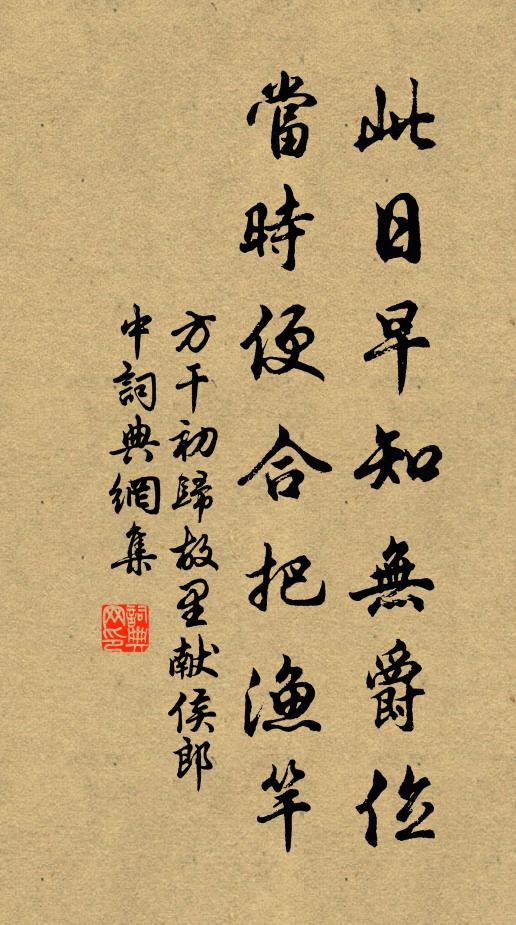 此日早知無爵位
當時便合把漁竿
方干初歸故里献侯郎
中詞典網集
詞典網印